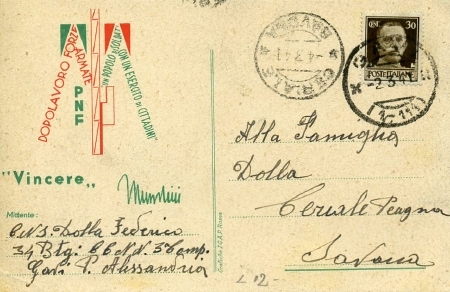 DOPOLAVORO FORZE ARMATE
P N F
"UN POPOLO DI SOLDATI
CON UN ESERCITO DI CITTADINI"
"Vincere„
Mussolini
Mittente:
CNS Dolla Federico
34 Btg: CC.N.N. 3 Comp.
Gavi P. Alessandria
CERIALE
SAVONA
CENT. 30
POSTE ITALIANE
Alla Famiglia
Dolla
Ceriale Peagna
Savona
L 12-